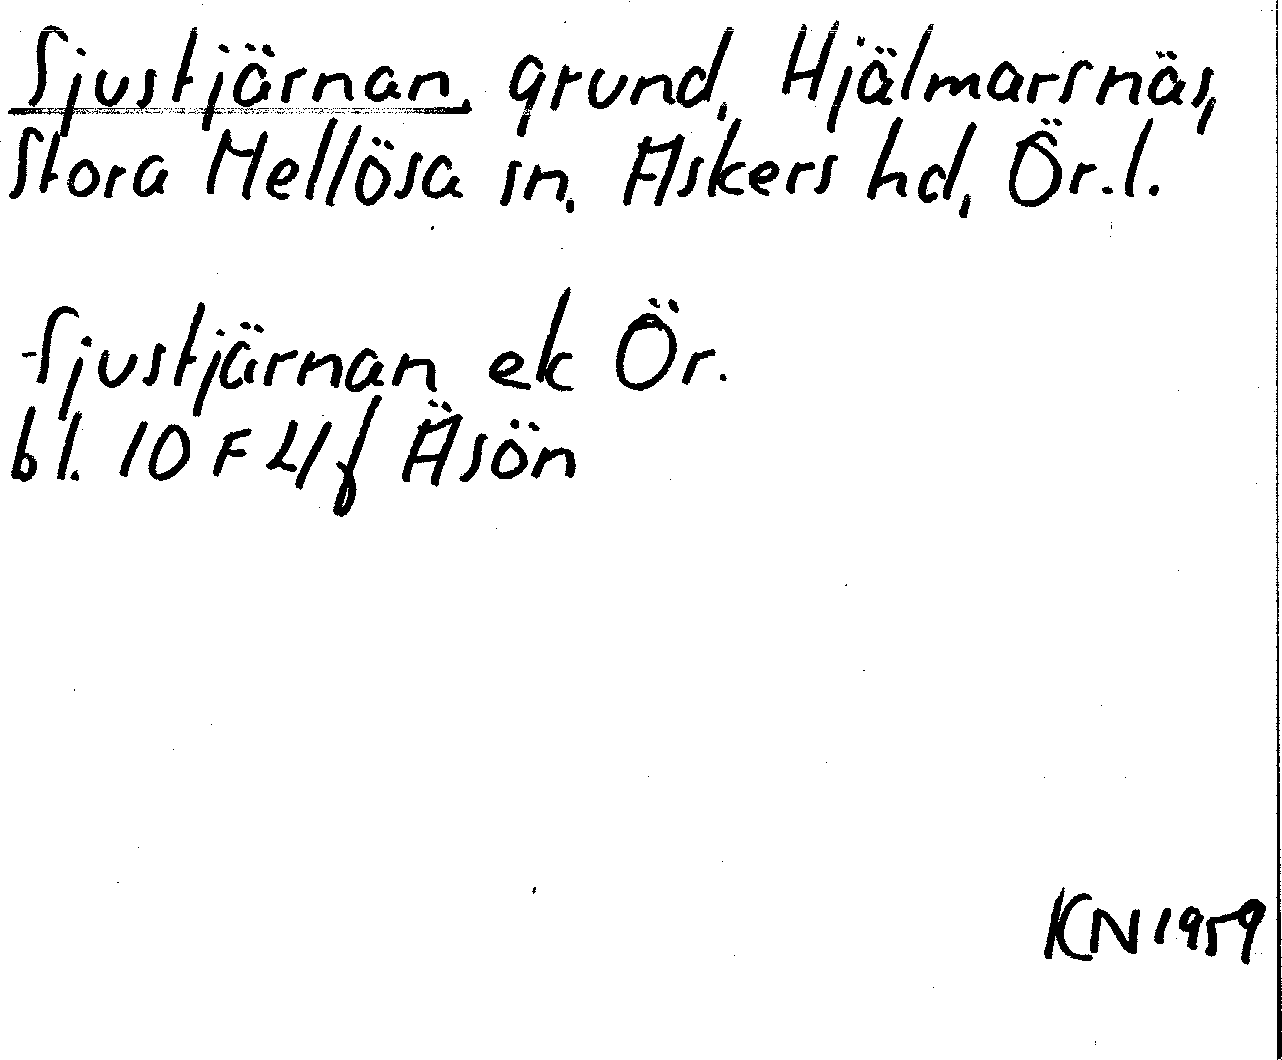 Sjustjärnan, grund, Hjälmarsnäs,
Stora Mellösa sn. Askers hd, Ör.l.
-Sjustjärnan ek Ör.
bl. 10 F 4 f Äsön
KN 1959